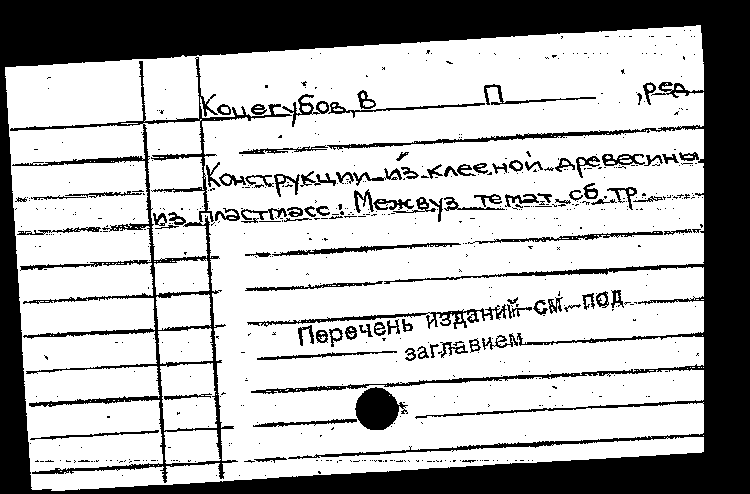 Коцегубов, В П ,ред
Конструкции из клееной древесины
из пластмасс: Межвуз темат. сб. тр.
Перечень изданий см. под
заглавием